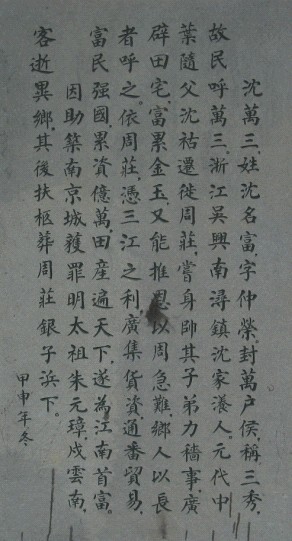 沈萬三,姓沈名富,字仲榮,封萬户侯,稱三秀,
故民呼萬三,浙江吳興南潯鎮沈家漾人。元代中
葉隨父沈祐遷徙周莊,嘗身帥其子弟力穡事,廣
辟田宅,富累金玉又能推恩以周急難,鄉人以長
者呼之。依周莊,憑三江之利,廣集貨資,通番貿易,
富民强國累資億萬田産遍天下,遂為江南首富。
因助築南京城獲罪明太祖朱元璋,戍雲南,
客逝異鄉,其後扶柩葬周莊銀子浜下。
甲申年冬